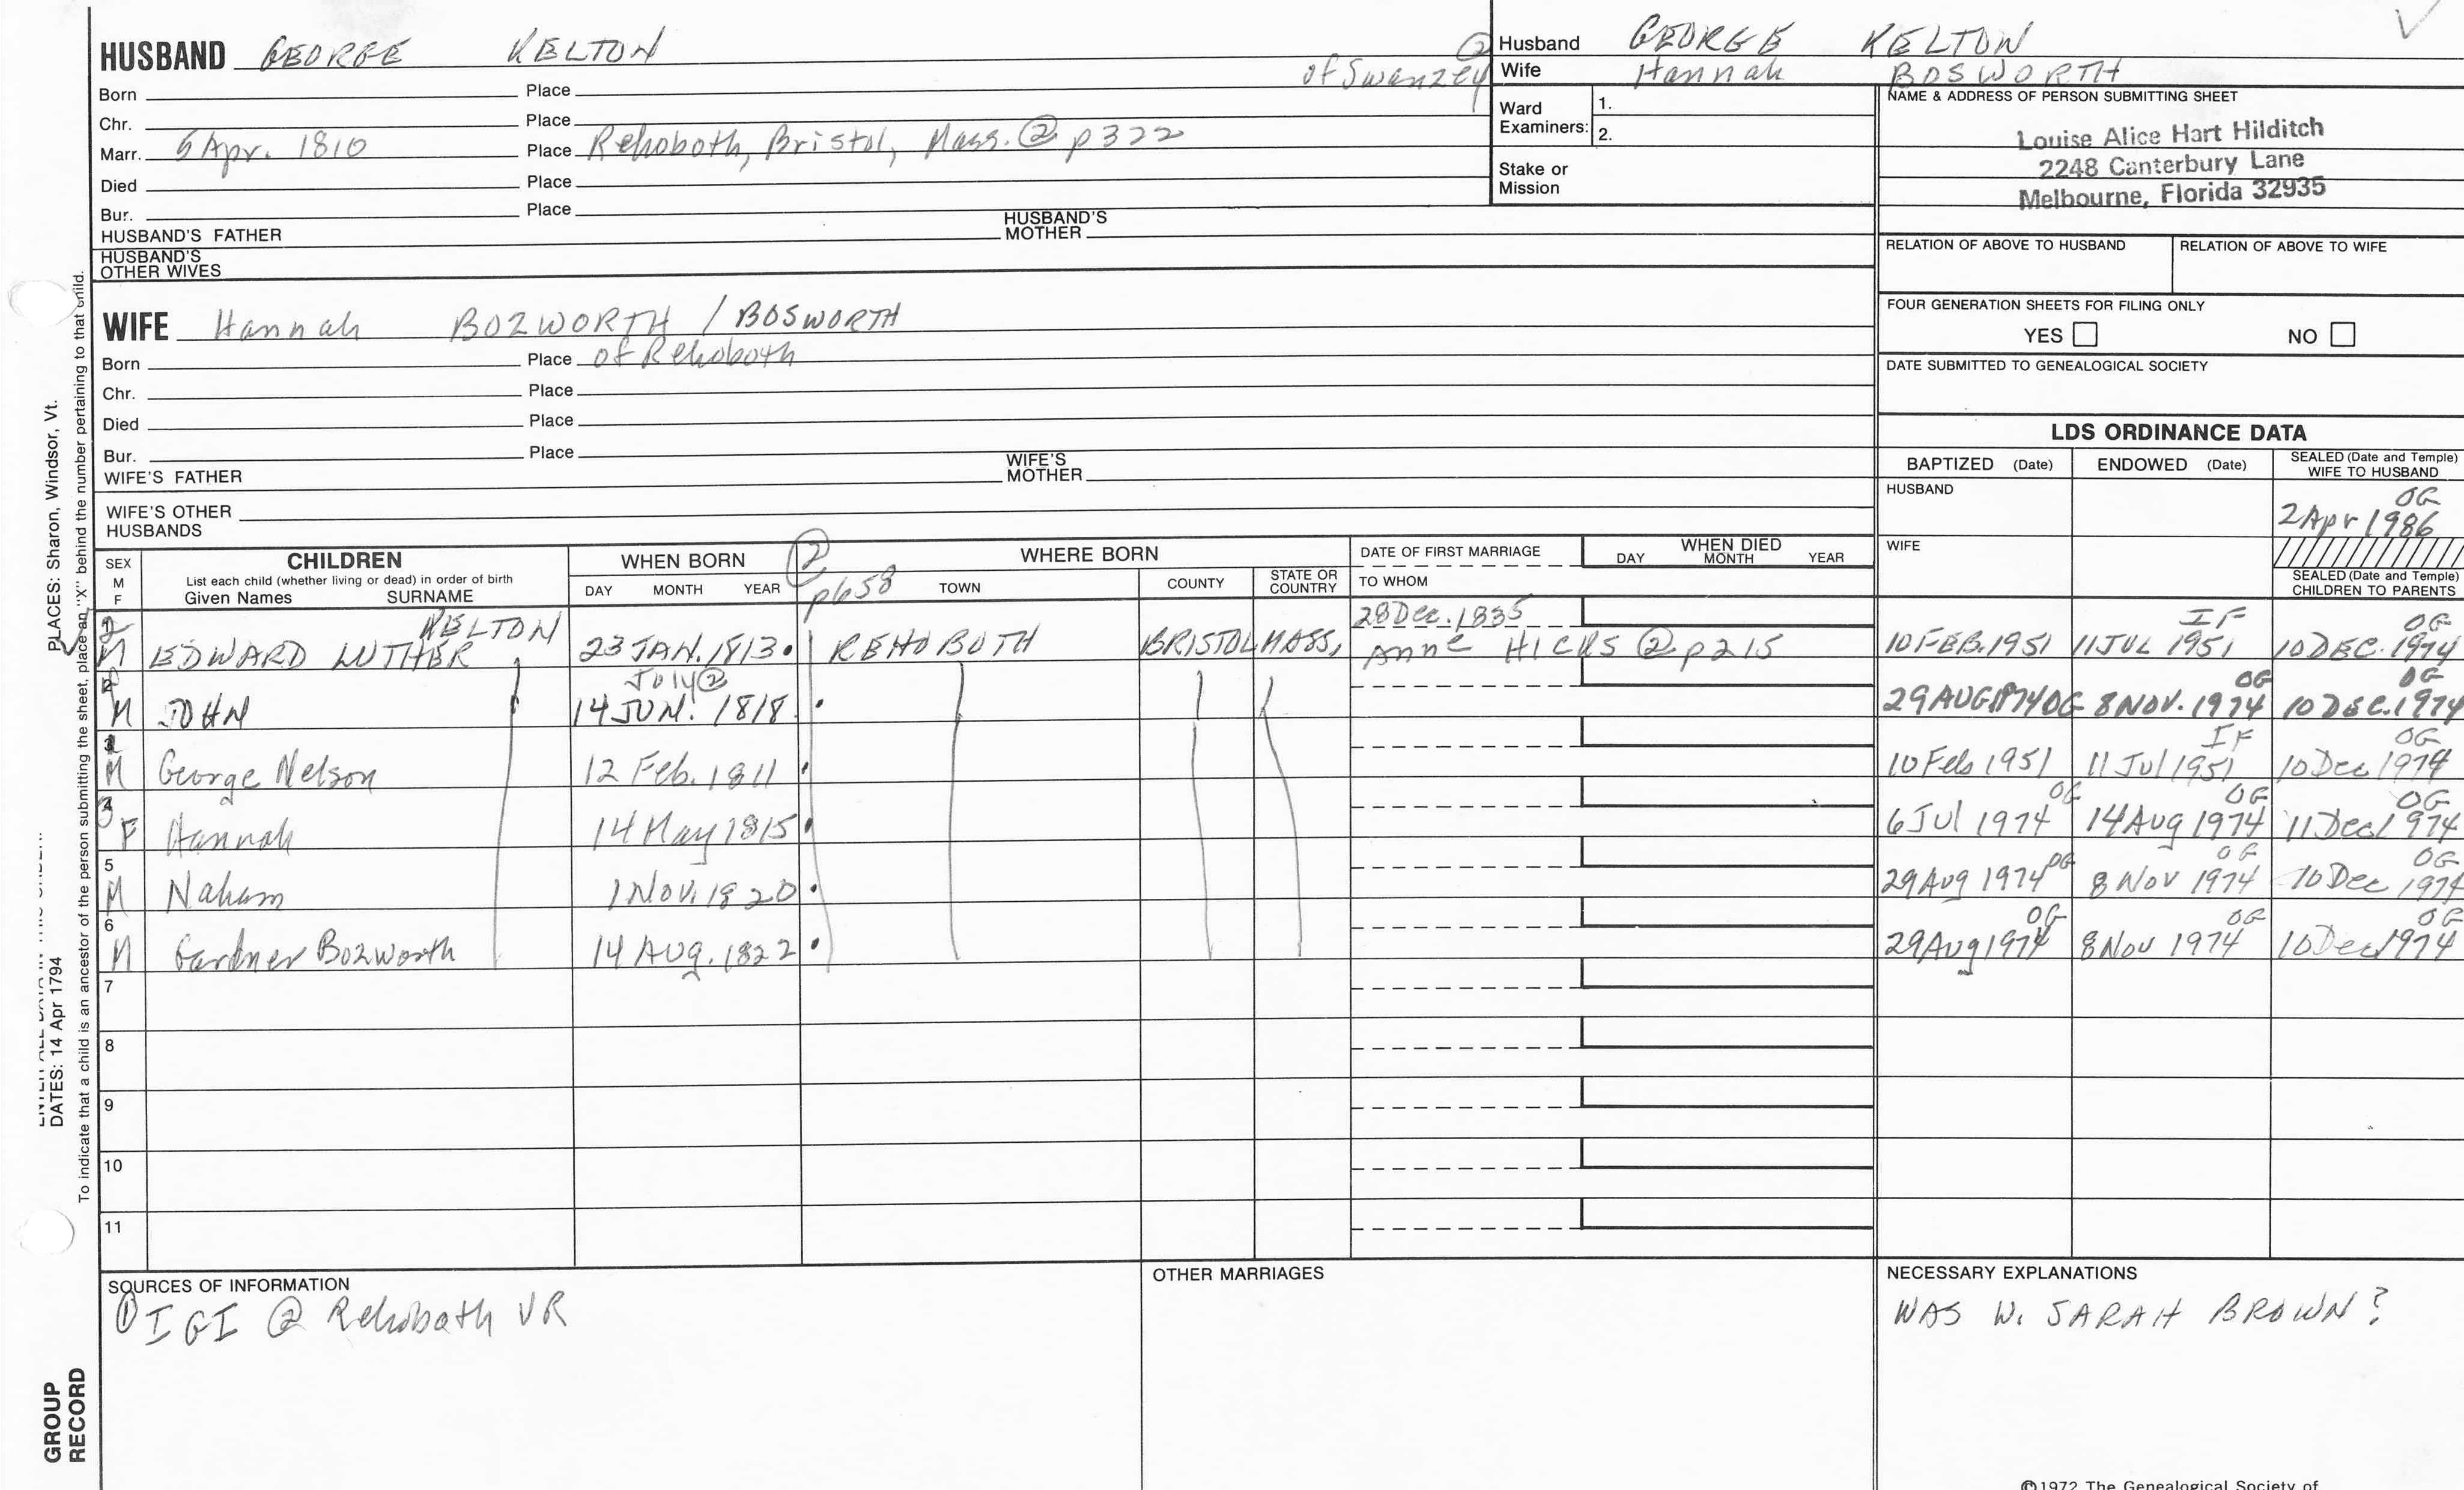 HUSBAND GEORGE KELTON
② of Swanzey
Born Place
Chr. Place
Marr. 5 Apr. 1810 Place Rehoboth, Bristol, Mass. ② p322
Died Place
Bur. Place
HUSBAND'S FATHER HUSBAND'S MOTHER
HUSBAND'S OTHER WIVES
Husband GEORGE KELTON
Wife Hannah BOSWORTH
Ward Examiners: 1.
2.
Stake or Mission
NAME & ADDRESS OF PERSON SUBMITTING SHEET
Louise Alice Hart Hilditch
2248 Canterbury Lane
Melbourne, Florida 32935
RELATION OF ABOVE TO HUSBAND RELATION OF ABOVE TO WIFE
FOUR GENERATION SHEETS FOR FILING ONLY
YES NO
DATE SUBMITTED TO GENEALOGICAL SOCIETY
WIFE Hannah BOZWORTH / BOSWORTH
Born Place of Rehoboth
Chr. Place
Died Place
Bur. Place
WIFE'S FATHER WIFE'S MOTHER
WIFE'S OTHER HUSBANDS
LDS ORDINANCE DATA
BAPTIZED (Date) ENDOWED (Date) SEALED (Date and Temple) WIFE TO HUSBAND
HUSBAND OG
2 Apr 1986
WIFE
SEALED (Date and Temple) CHILDREN TO PARENTS
SEX M F CHILDREN WHEN BORN ② WHERE BORN DATE OF FIRST MARRIAGE WHEN DIED
List each child (whether living or dead) in order of birth
Given Names SURNAME DAY MONTH YEAR p658 TOWN COUNTY STATE OR COUNTRY TO WHOM DAY MONTH YEAR
KELTON 28 Dec. 1835 IF OG
2 M EDWARD LUTHER 23 JAN. 1813 REHOBOTH BRISTOL MASS, Anne HICKS ② p215 10 FEB. 1951 11 JUL 1951 10 DEC. 1974
July ② OG OG
M JOHN 14 JUN. 1818 29 AUG 1974 OG 8 NOV. 1974 10 DEC. 1974
IF OG
1 M George Nelson 12 Feb. 1811 10 Feb 1951 11 Jul 1951 10 Dec 1974
OG OG OG
3 F Hannah 14 May 1815 6 Jul 1974 14 Aug 1974 11 Dec 1974
OG OG OG
5 M Nahum 1 Nov. 1820 29 Aug 1974 8 Nov 1974 10 Dec 1974
OG OG OG
6 M Gardner Bozworth 14 AUG. 1822 29 Aug 1974 8 Nov 1974 10 Dec 1974
7
8
9
10
11
SOURCES OF INFORMATION OTHER MARRIAGES NECESSARY EXPLANATIONS
① IGI ② Rehobath VR
WAS W. SARAH BROWN?
PLACES: Sharon, Windsor, Vt.
DATES: 14 Apr 1794
To indicate that a child is an ancestor of the person submitting the sheet, place an "X" behind the number pertaining to that child.
GROUP RECORD
©1972 The Genealogical Society of